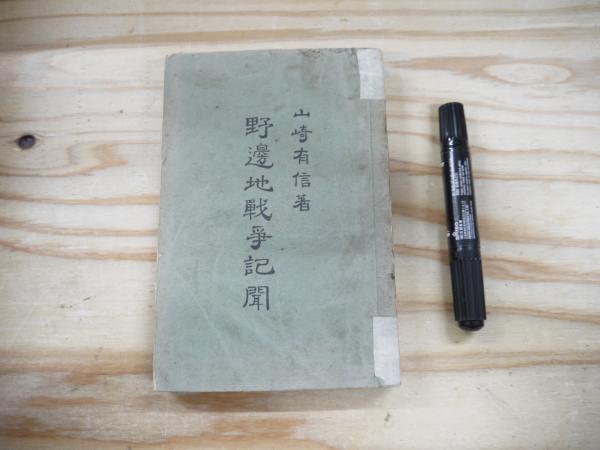 山崎有信著
野邊地戰爭記聞